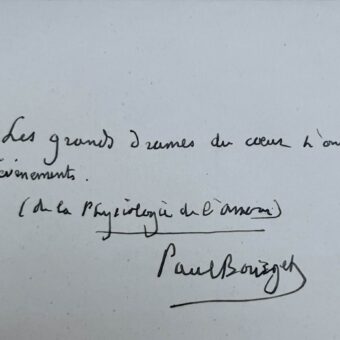 Les grands drames du cœur n'on
événements.
(de la Physiologie de l'amour)
Paul Bourget